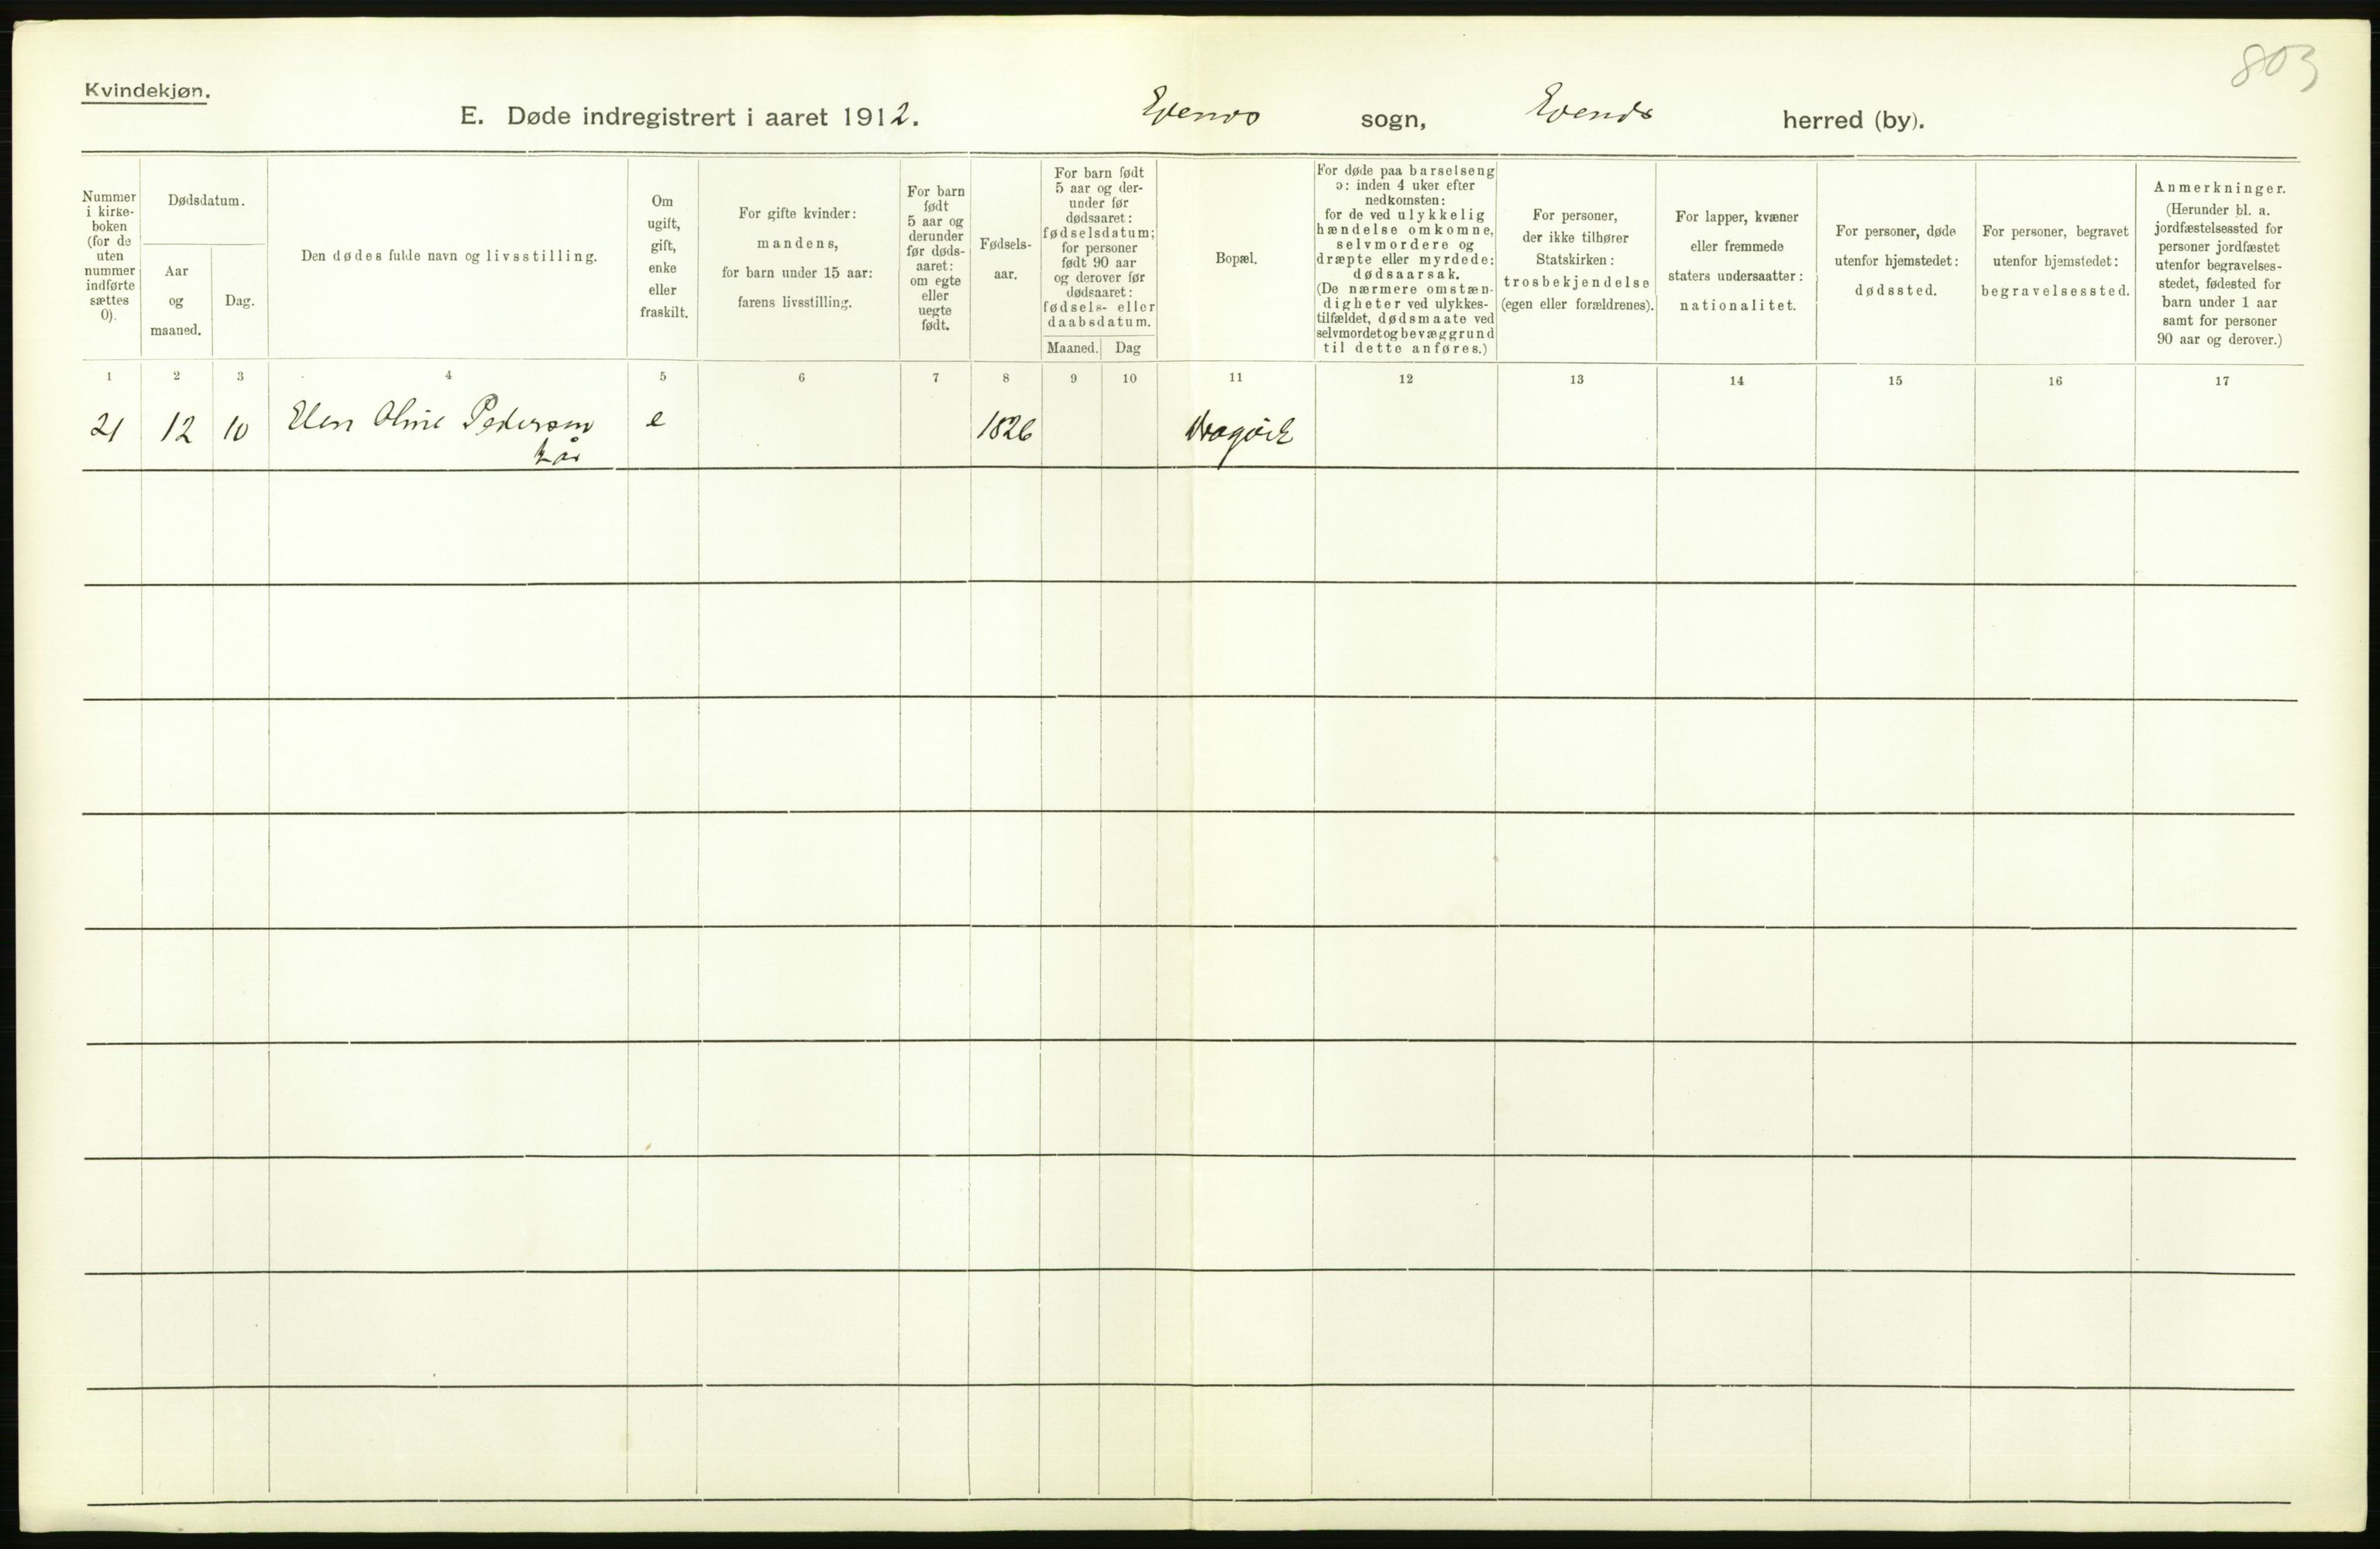 803
Kvindekjøn.
E. Døde indregistrert i aaret 1912. Evenes sogn, Evenes herred (by).
Nummer
i kirke-
boken
(for de
uten
nummer
indførte
sættes
0).
Dødsdatum.
Aar
og
maaned.
Dag.
Den dødes fulde navn og livsstilling.
Om
ugift,
gift,
enke
eller
fraskilt.
For gifte kvinder:
mandens,
for barn under 15 aar:
farens livsstilling.
For barn
født
5 aar og
derunder
før døds-
aaret:
om egte
eller
uegte
født.
Fødsels-
aar.
For barn født
5 aar og der-
under før
dødsaaret:
fødselsdatum;
for personer
født 90 aar
og derover før
dødsaaret:
fødsels- eller
daabsdatum.
Maaned.
Dag
Bopæl.
For døde paa barselseng
ɔ: inden 4 uker efter
nedkomsten:
for de ved ulykkelig
hændelse omkomne,
selvmordere og
dræpte eller myrdede:
dødsaarsak.
(De nærmere omstæn-
digheter ved ulykkes-
tilfældet, dødsmaate ved
selvmordet og bevæggrund
til dette anføres.)
For personer,
der ikke tilhører
Statskirken:
trosbekjendelse
(egen eller forældrenes).
For lapper, kvæner
eller fremmede
staters undersaatter:
nationalitet.
For personer, døde
utenfor hjemstedet:
dødssted.
For personer, begravet
utenfor hjemstedet:
begravelsessted.
Anmerkninger.
(Herunder bl. a.
jordfæstelsessted for
personer jordfæstet
utenfor begravelses-
stedet, fødested for
barn under 1 aar
samt for personer
90 aar og derover.)
1 2 3 4 5 6 7 8 9 10 11 12 13 14 15 16 17
21 12 10 Elen Oline Pedersen e 1826